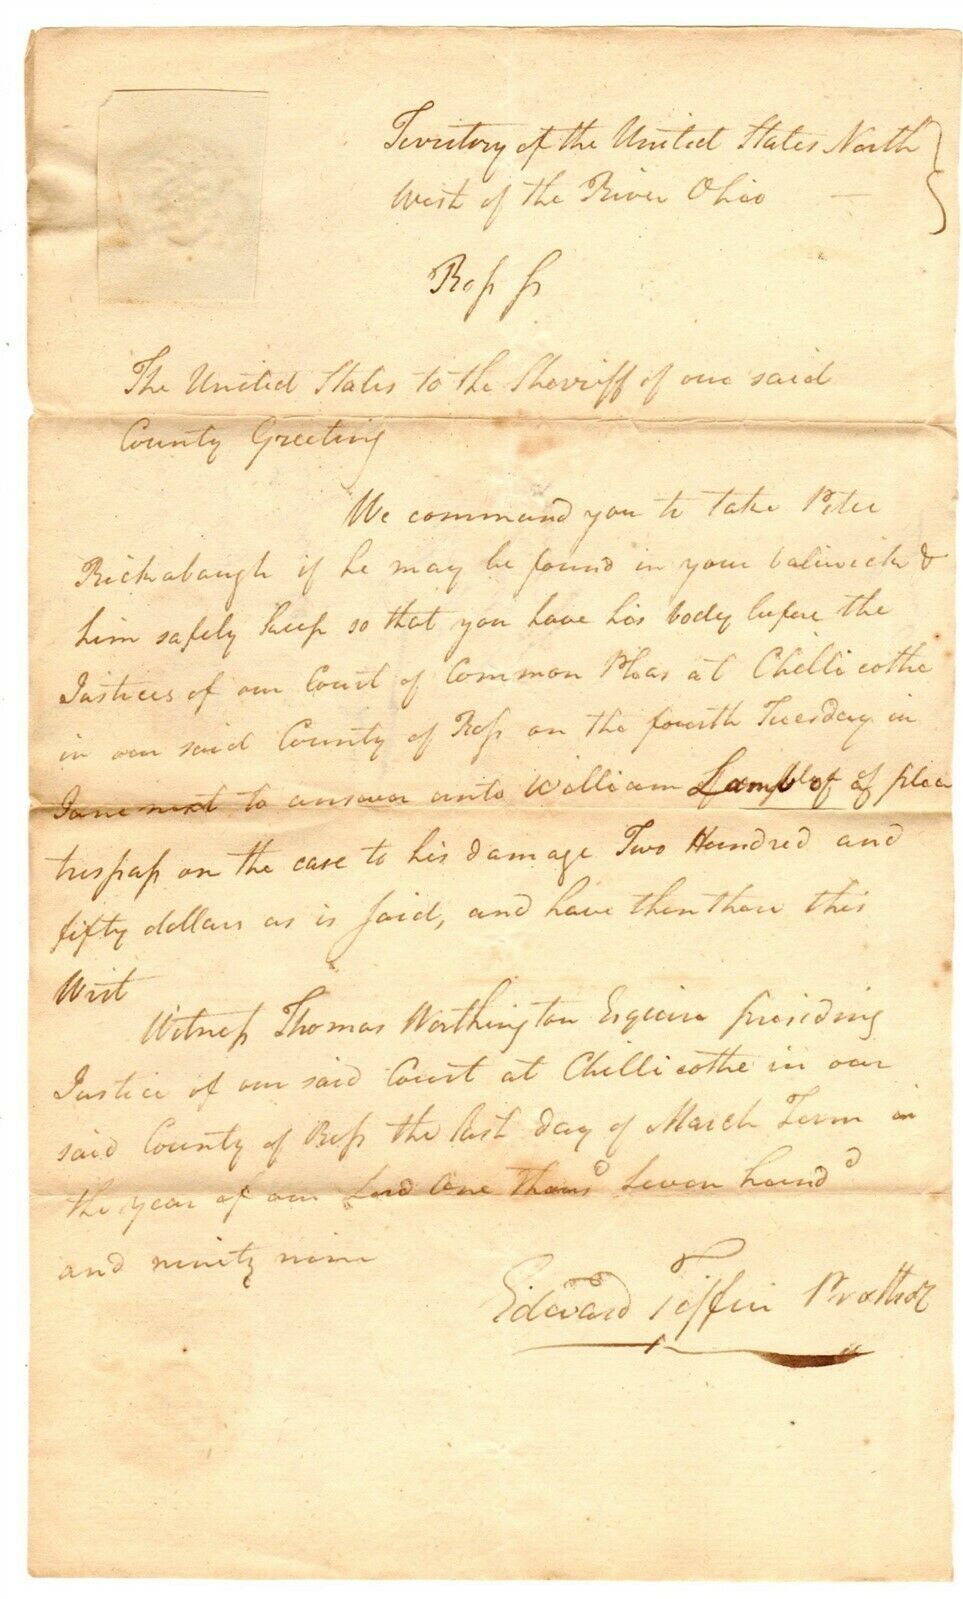 Territory of the United States North
West of the River Ohio —
Ross Ss
The United States to the Sherriff of our said
County Greeting
We command you to take Peter
Rickabaugh if he may be found in your baliwick &
him safely keep so that you have his body before the
Justices of our Court of Common Pleas at Chillicothe
in our said County of Ross on the fourth Tuesday in
June next to answer unto William of plea
trespass on the case to his damage Two Hundred and
fifty dollars as is said, and have then there this
Writ
Witness Thomas Worthington Esquire presiding
Justice of our said Court at Chillicothe in our
said County of Ross the last day of March Term in
the year of our Lord One thousd Seven hundd
and ninety nine
Edward Tiffin Prothoy